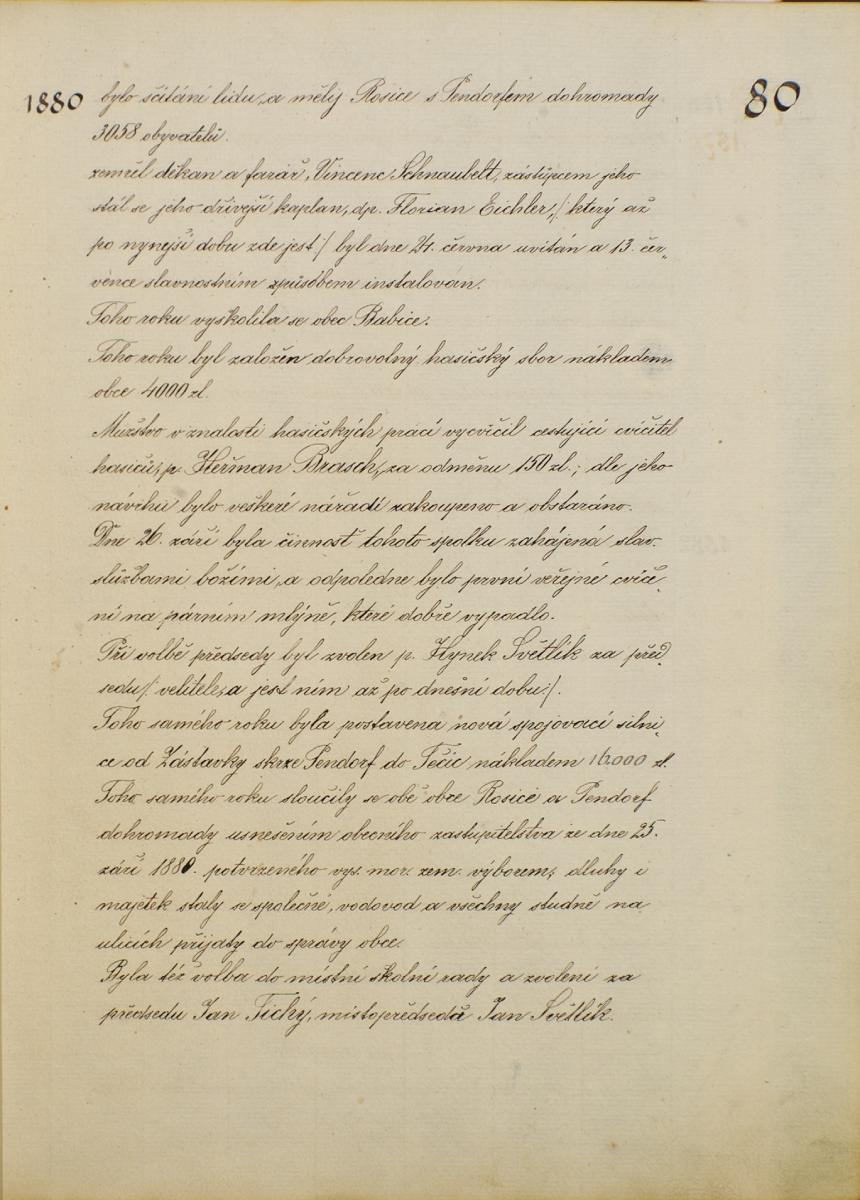 80
1880 bylo sčítání lidu, a měly Rosice s Pendorfem dohromady
3058 obyvatelů.
zemřel děkan a farář, Vincenc Schnaubelt, zástupcem jeho
stál se jeho dřívejší kaplan, dp. Florian Eichler, /: který až
po nynejší dobu zde jest :/ byl dne 24. června uvítán a 13. čer„
vence slavnostním způsobem instalován.
Toho roku vyškolila se obec Babice.
Toho roku byl založen dobrovolný hasičský sbor nákladem
obce 4000 zl.
Mužstvo v znalosti hasičských prací vycvičil cestující cvičitel
hasičů, p. Heřman Brasch, za odměnu 150 zl.; dle jeho
návrhu bylo veškeré nářadí zakoupeno a obstaráno.
Dne 26. září byla činnosť tohoto spolku zahájená slav.
službami božími, a odpoledne bylo první veřejné cviče„
ní na párním mlýně, které dobře vypadlo.
Při volbě předsedy byl zvolen p. Hynek Světlík za před
sedu /: velitele, a jest ním až po dnešní dobu :/.
Toho samého roku byla postavena nová spojovací silni„
ce od Zástavky skrze Pendorf do Tečic nákladem 16.000 zl.
Toho samého roku sloučily se obě obce Rosice a Pendorf
dohromady usnesením obecního zastupitelstva ze dne 25.
září 1880. potvrzeného vys. mor. zem. výborem; dluhy i
majetek staly se společné, vodovod a všechny studně na
ulicích přijaty do správy obce.
Byla též volba do místní školní rady a zvoleni za
předsedu Jan Tichý, mistopředsedů Jan Světlík.